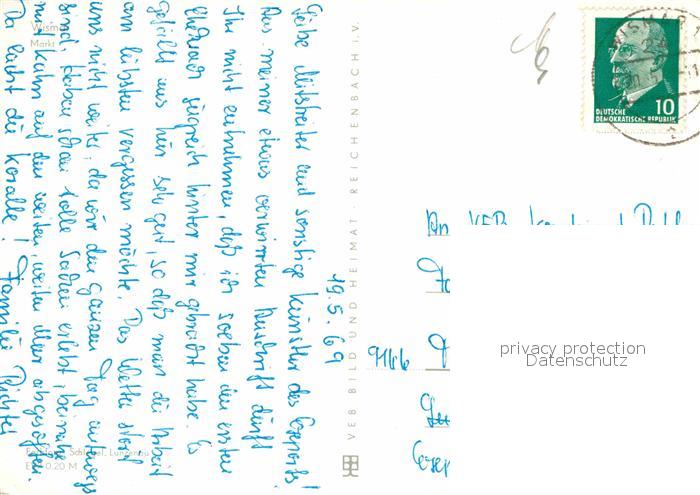 Wismar
Markt
Liebe Mitstreiter und sonstige Künstler des Exports!
Aus meiner etwas verwirrten Anschrift dürft
Ihr nicht entnehmen, daß ich soeben den ersten
Ehekrach siegreich hinter mir gebracht habe. Es
gefällt uns hier sehr gut, so daß man die Arbeit
am liebsten vergessen möchte. Das Wetter stört
uns nicht weiter, da wir den ganzen Tag unterwegs
sind. Haben schon tolle Sachen erlebt, beinahe
mit Kahn auf dem weiten, weiten Meer abgesoffen.
Da lacht die Koralle! Familie Richter
19.5.69
Schlegel, Lunzenau
0.20 M
VEB BILD UND HEIMAT · REICHENBACH I. V.
10
DEUTSCHE
DEMOKRATISCHE REPUBLIK
An VEB
9166
privacy protection
Datenschutz